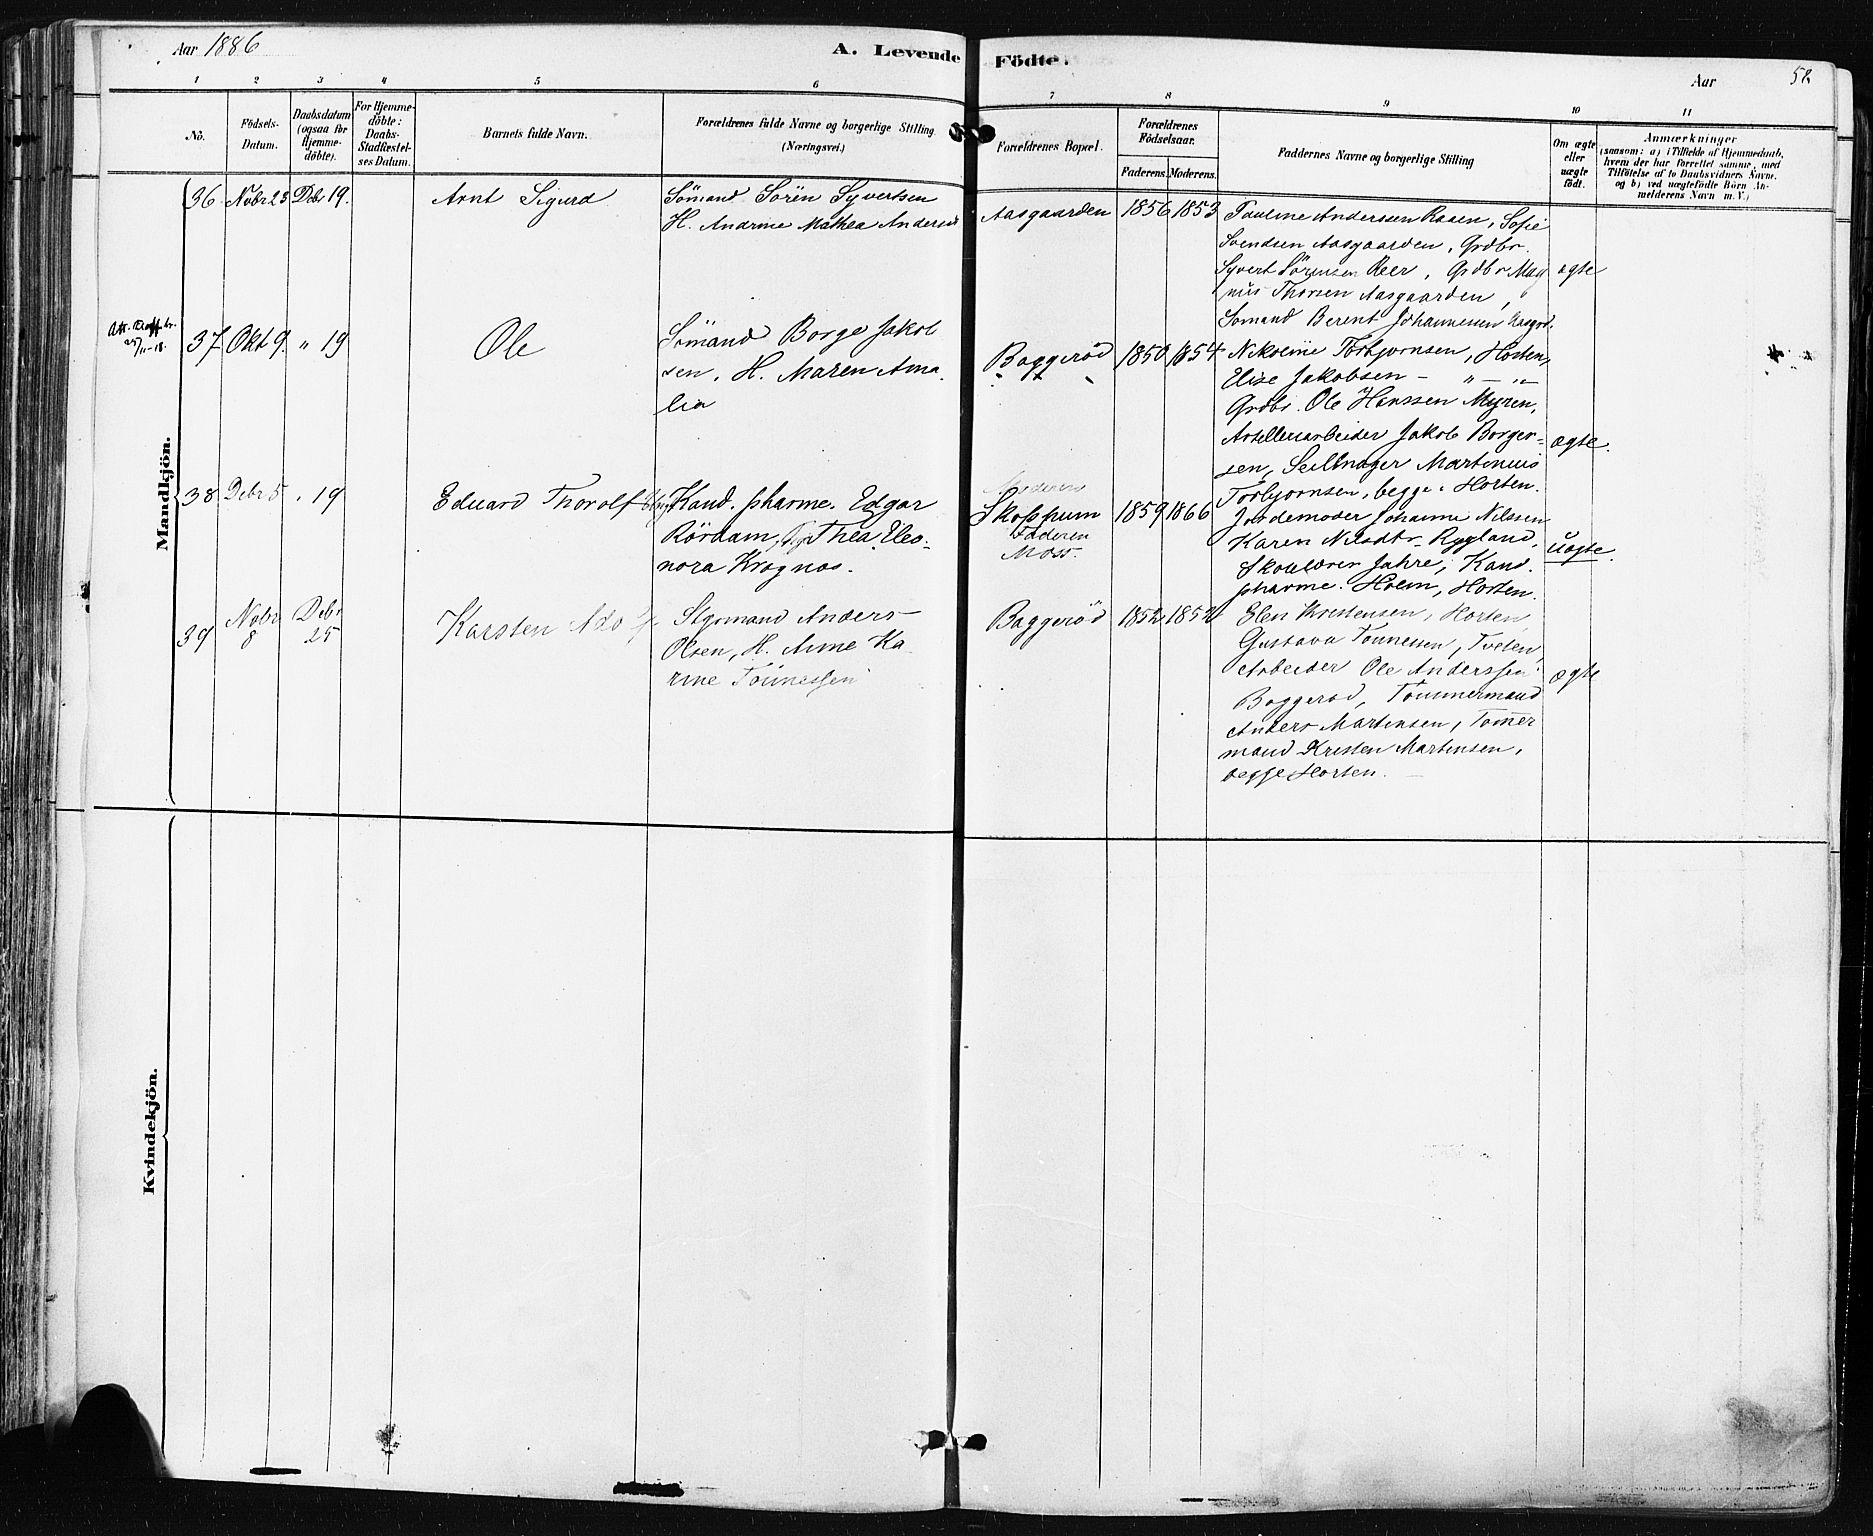 Aar 1886
A. Levende Födte.
Aar 52
1 2 3 4 5 6 7 8 9 10 11
No.
Födsels-
Datum.
Daabsdatum
(ogsaa for
Hjemme-
döbte).
For Hjemme-
döbte:
Daabs-
Stadfæstel-
ses Datum.
Barnets fulde Navn.
Forældrenes fulde Navne og borgerlige Stilling.
(Næringsvei.)
Forældrenes Bopæl.
Forældrenes
Födselsaar.
Faderens. Moderens.
Faddernes Navne og borgerlige Stilling
Om ægte
eller
uægte
födt.
Anmærkninger
(saasom: a) i Tilfælde af Hjemmedaab,
hvem der har forrettet samme, med
Tilföielse af to Daabsvidners Navne.
og b) ved uægtefödte Börn An-
melderens Navn m. V.)
Mandkjön.
36. Nobr 23 Debr 19.
Arnt Sigurd
Sömand Sören Syvertsen
H. Andrine Mathea Anders
Aasgaarden
1856 1853
Pauline Anderssen Raaen, Sofie
Svendsen Aasgaarden, Grdbr.
Syvert Sörensen Reer, Grdbr Mag
nus Thorsen Aasgaarden,
Sömand Berent Johannessen Aasgrd.
ægte
37 Okt 9. " 19
Ole
Sömand Borge Jakob
sen, H. Maren Ama
lia
Baggeröd
1850 1854
Nikoline Torbjornsen, Horten,
Elise Jakobsen - " - "
Grdbr. Ole Hanssen Myren,
Artilleriarbeider Jakob Borger=
sen, Seilmager Martinius
Torbjornsen, begge Horten.
ægte.
38 Debr 5 " 19
Eduard Thorolf
Kand. pharm. Edgar
Rördam, Thea Eleo-
nora Krognos.
Moderens
Skoppum
Faderen
Moss.
1859 1866
Jordemoder Johanne Nilssen
Karen Nilsdtr Rygland,
Skolelærer Jahre, Kand.
pharm. Holm, Horten.
uægte.
39 Nobr 8 Debr 25
Karsten Adolf
Styrmand Anders
Olsen, H. Anne Ka
rine Tönnessen
Baggeröd
1852 1852
Elen Kristensen, Horten,
Gustava Tönnessen, Tveten
Arbeider Ole Anderssen
Baggeröd, Tömmermand
Anders Martinsen, Tömmer
mand Kristen Martinsen,
begge Horten.
ægte
Kvindekjön.